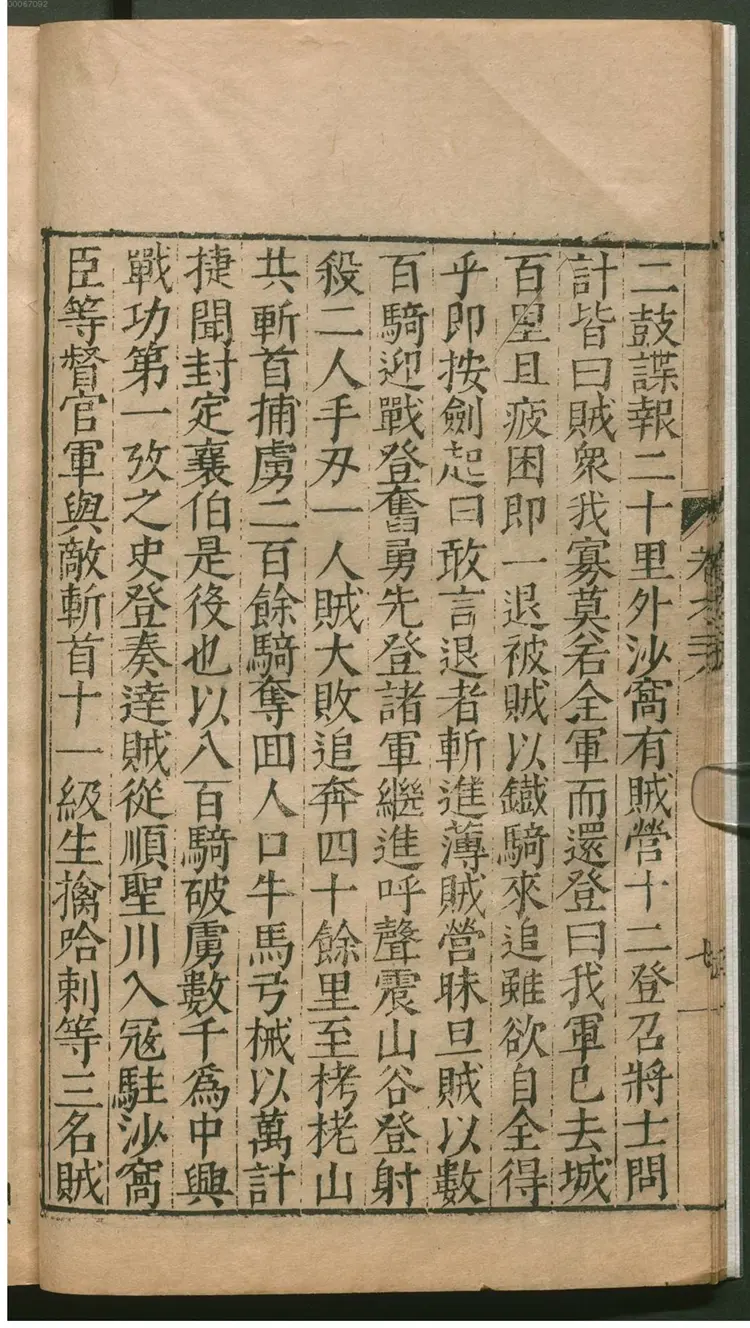 二鼓諜報二十里外沙窩有賊營十二登召將士問
計皆曰賊衆我寡莫若全軍而還登曰我軍已去城
百里且疲困即一退被賊以鐵騎來追雖欲自全得
乎即按劍起曰敢言退者斬進薄賊營昧旦賊以數
百騎迎戰登奮勇先登諸軍繼進呼聲震山谷登射
殺二人手刃一人賊大敗追奔四十餘里至栲栳山
共斬首捕虜二百餘騎奪回人口牛馬弓械以萬計
捷聞封定襄伯是後也以八百騎破虜數千爲中興
戰功第一攷之史登奏達賊從順聖川入冦駐沙窩
臣等督官軍與敵斬首十一級生擒哈剌等三名賊
00067092